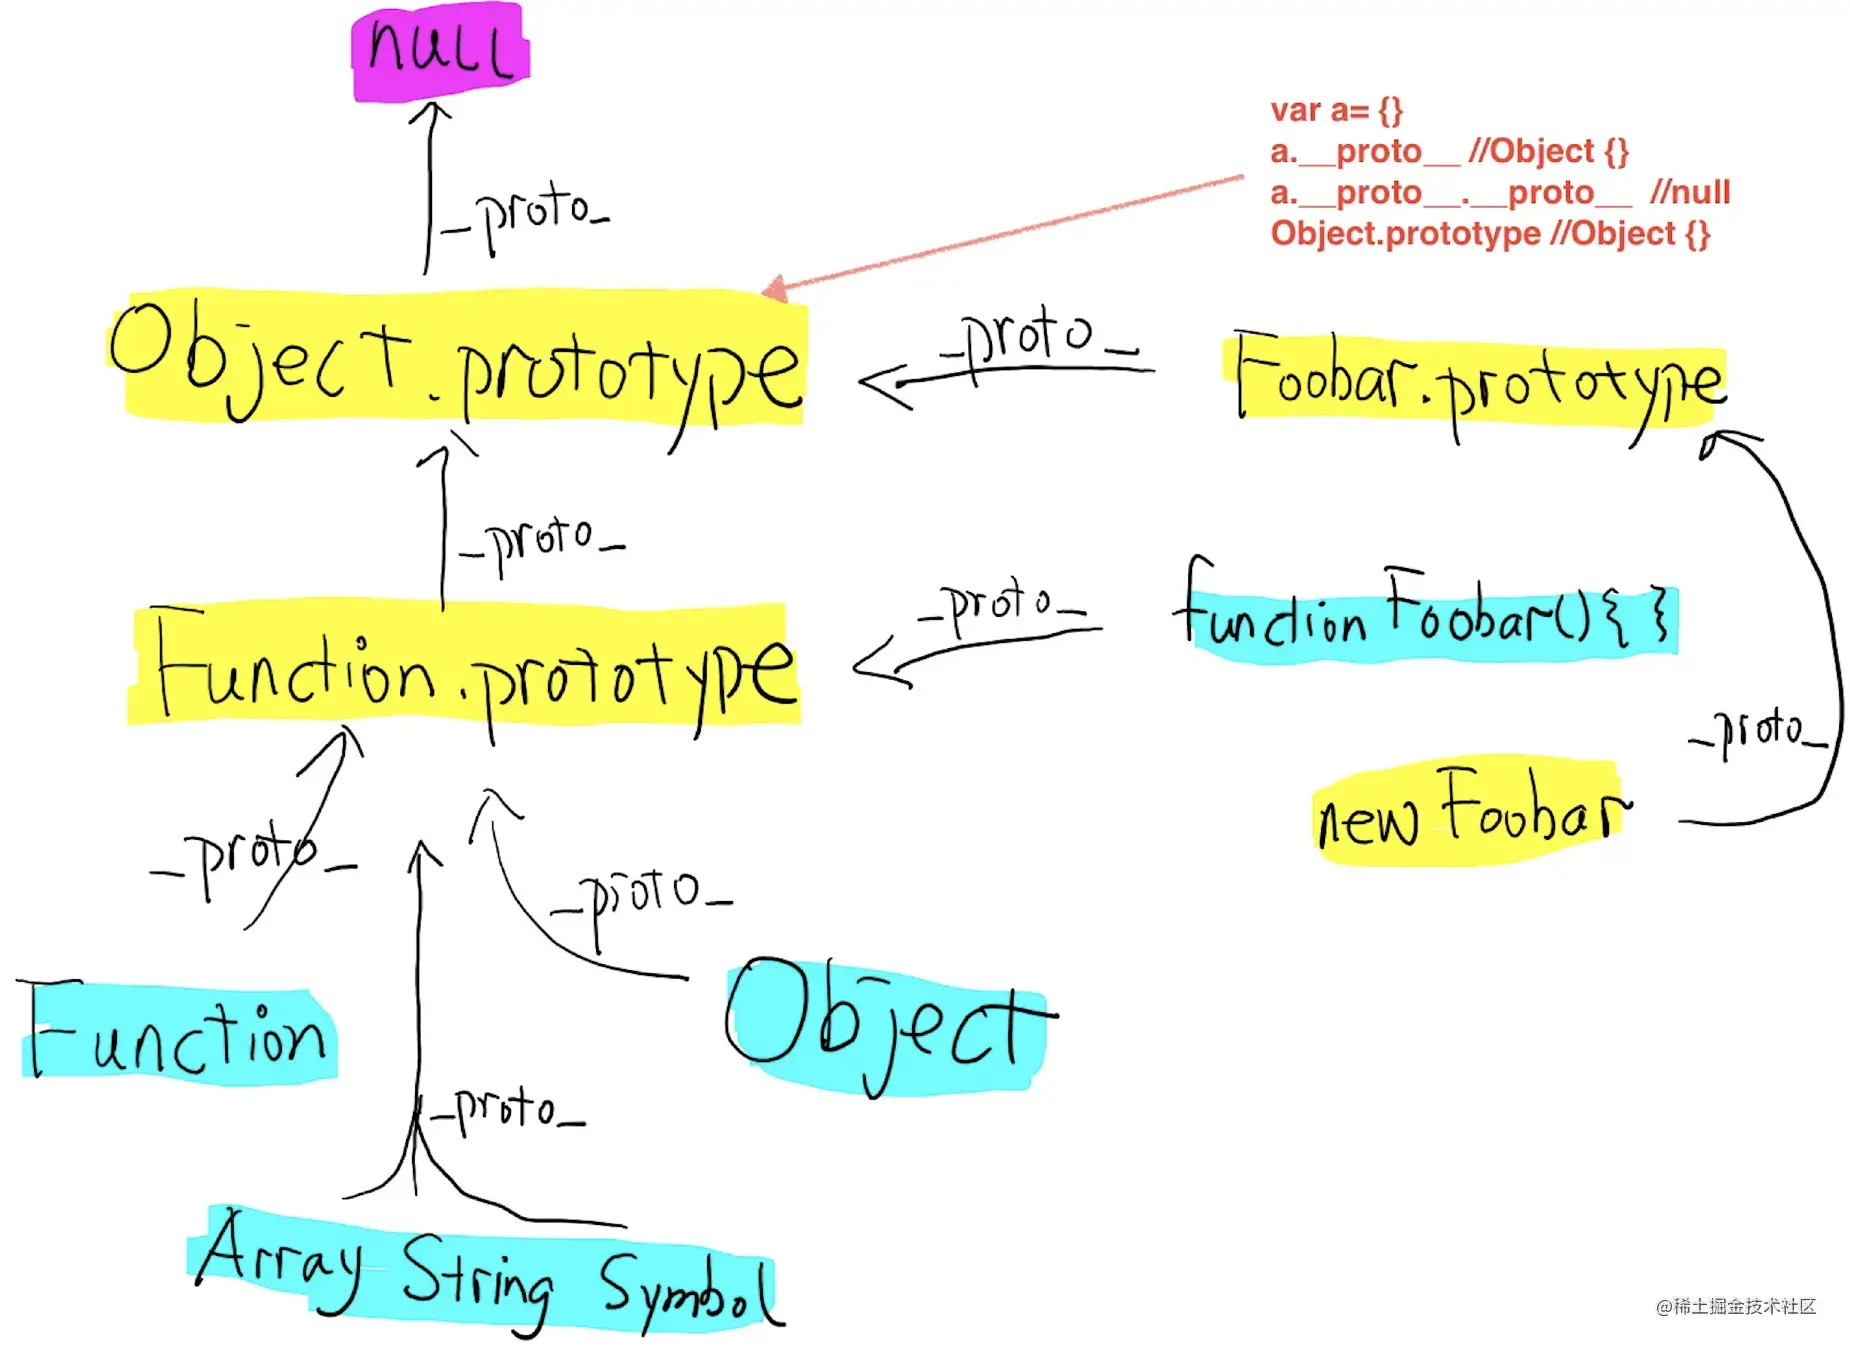 null
_proto_
var a= {}
a.__proto__ //Object {}
a.__proto__.__proto__ //null
Object.prototype //Object {}
Object.prototype
_proto_
Foobar.prototype
_proto_
_proto_
function Foobar(){ }
Function.prototype
_proto_
new Foobar
_proto_
_proto_
Function
Object
_proto_
Array String Symbol
@稀土掘金技术社区